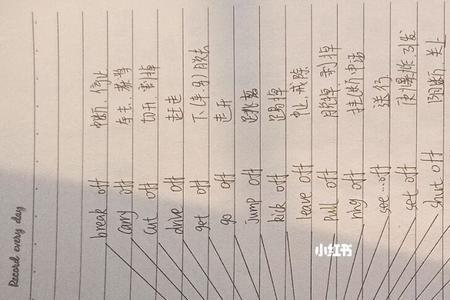 Record every day
break off 中断、停止
carry off
cut off 切开 割掉
drive off 赶走
get off 下(车、马) 脱去
go off 走开
jump off 跳离
kick off 踢掉
leave off 停止 戒除
pull off 脱掉 剥掉
ring off 挂断电话
see...off 送行
set off 使爆炸 引发
shut off 关上
小红书